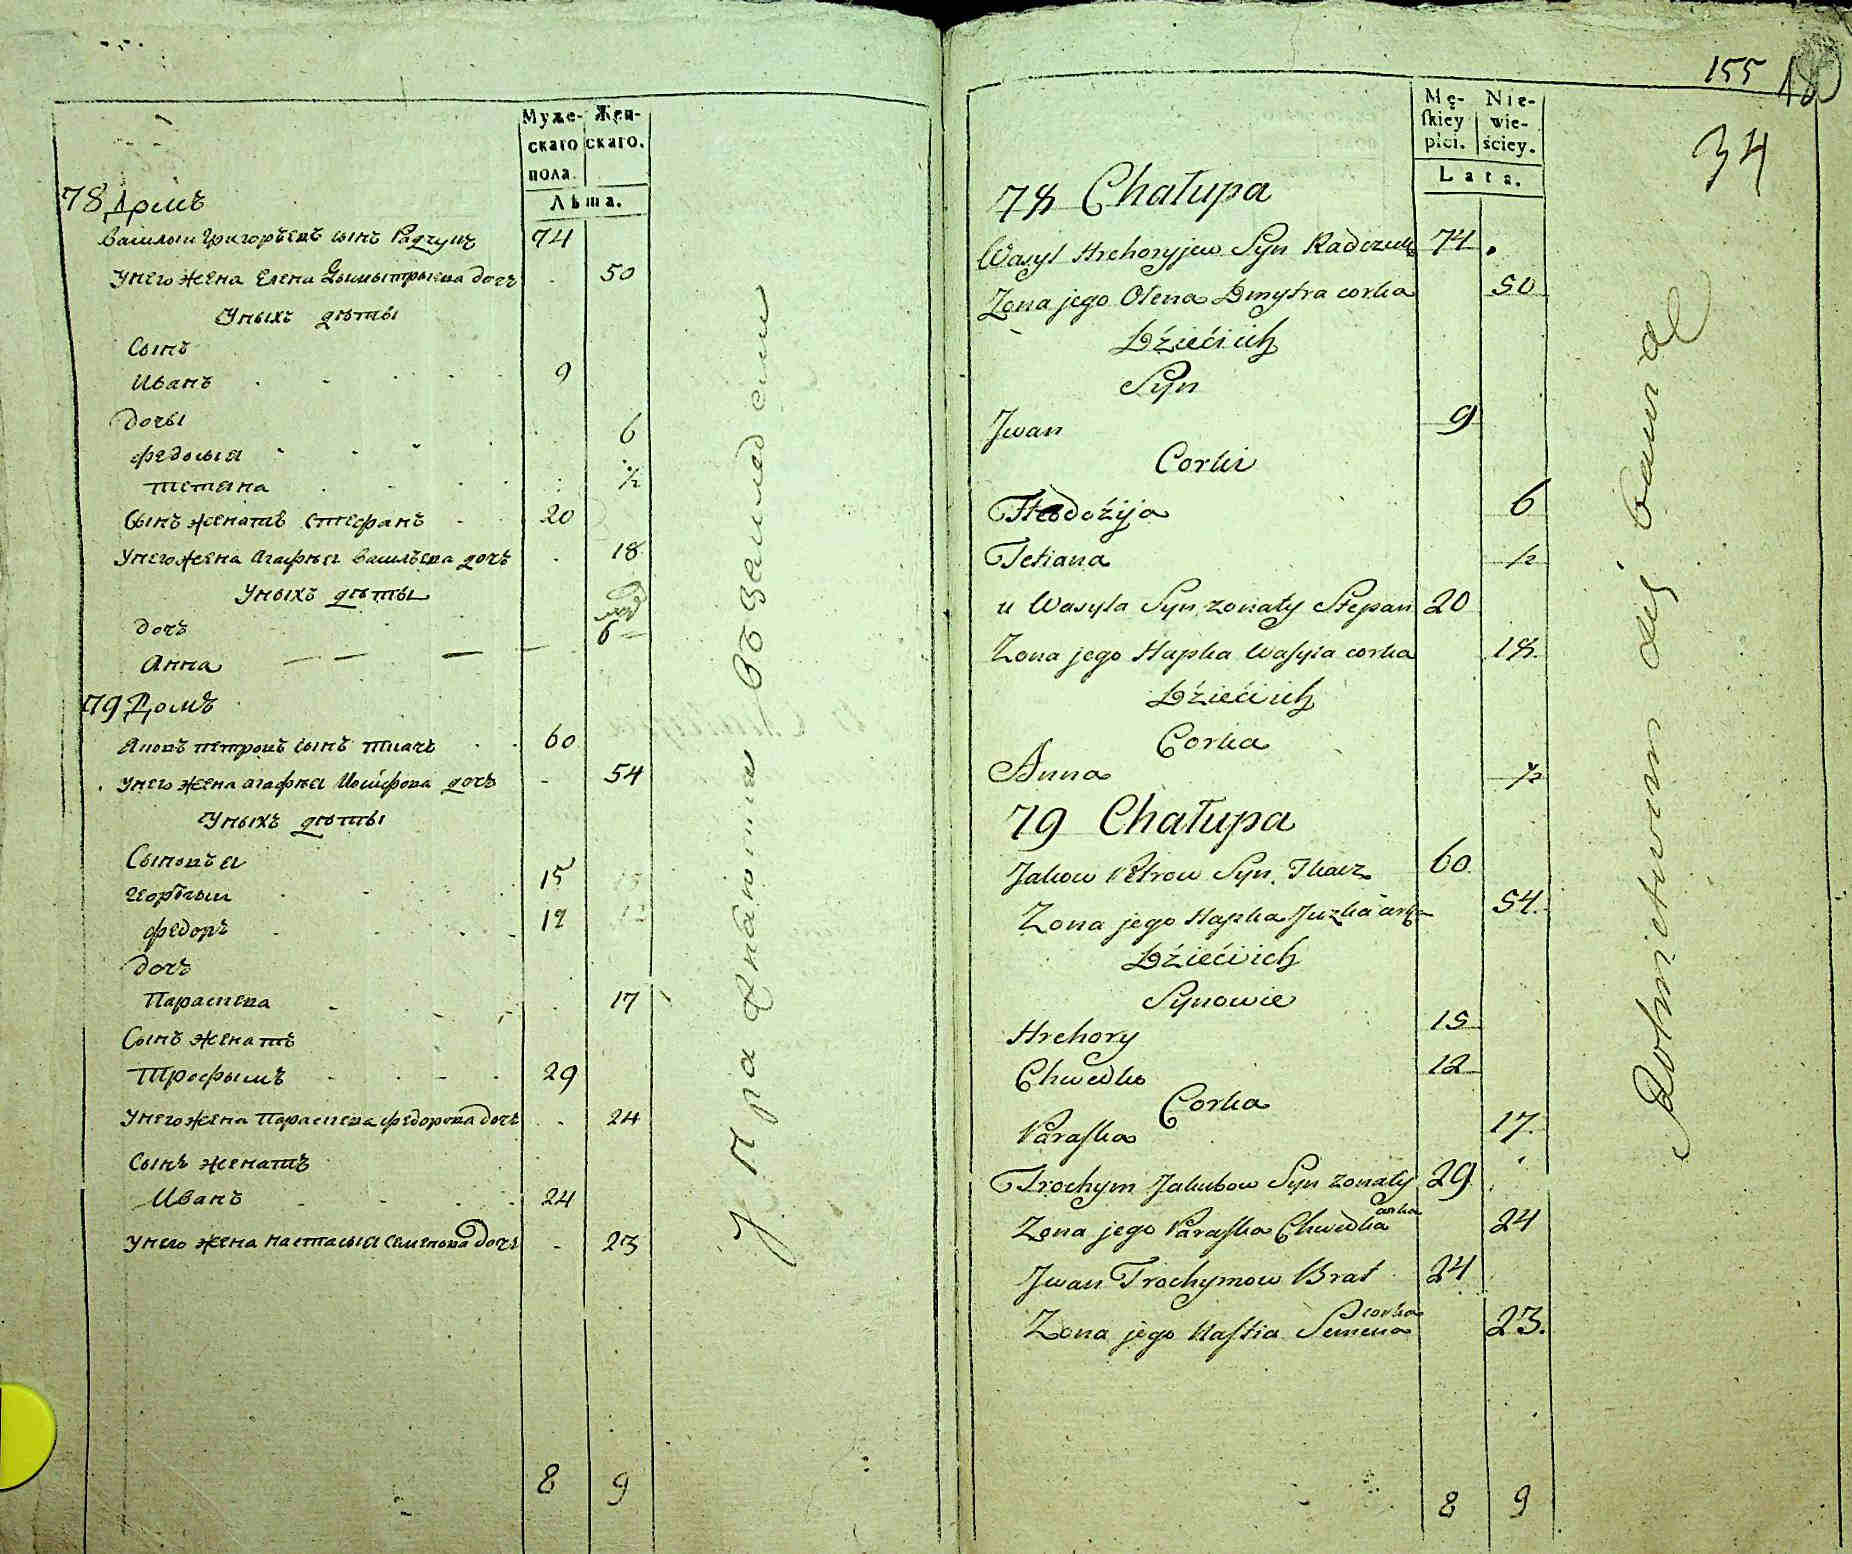 Муже- Жен-
скаго скаго.
пола.
Лѣта.
78 Домъ
Василий Григорьевъ сынъ Радчукъ 74
У него жена Елена Дымытрыева дочь 50
У нихъ дѣты
Сынъ
Иванъ 9
Дочы
Федосыя 6
Тетяна ½
Сынъ женатъ Стефанъ 20
У него жена Агафыя Васильева дочь 18
У нихъ дѣты
Дочь
Анна 6
79 Домъ
Яковъ Петровъ сынъ Ткачъ 60
У него жена Агафыя Иосифова дочь 54
У нихъ дѣты
Сыновъя
Георгий 15
Федоръ 12
Дочь
Параскева 17
Сынъ женатъ
Трофымъ 29
У него жена Параскева Федорова дочь 24
Сынъ женатъ
Иванъ 24
У него жена Настасыя Семенова дочь 23
8 9
155
34
Mę- Nie-
skiey wie-
płci. ściey.
Lata.
78 Chałupa
Wasyl Hrehoryjew Syn Radczuk 74
Zona jego Olena Dmytra corka 50
Dźieći ich
Syn
Jwan 9
Corki
Theodożija 6
Tetiana ½
u Wasyla Syn zonaty Stepan 20
Zona jego Hapka Wasyla corka 18
Dźieći ich
Corka
Anna ½
79 Chałupa
Jakow Petrow Syn Tkacz 60
Zona jego Hapka Juzka corka 54
Dźieći ich
Synowie
Hrehory 15
Chwedko 12
Corka
Paraska 17
Trochym Jakubow Syn zonaty 29
Zona jego Paraska Chwedka corka 24
Jwan Trochymow Brat 24
Zona jego Nastia Semena corka 23.
8 9